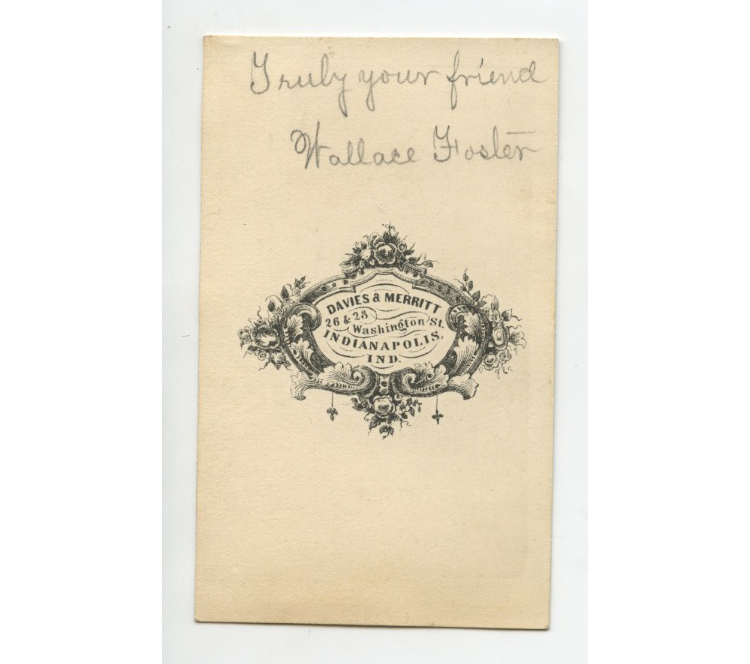 Truly your friend
Wallace Foster
DAVIES & MERRITT
26 & 28
Washington St.
INDIANAPOLIS,
IND.